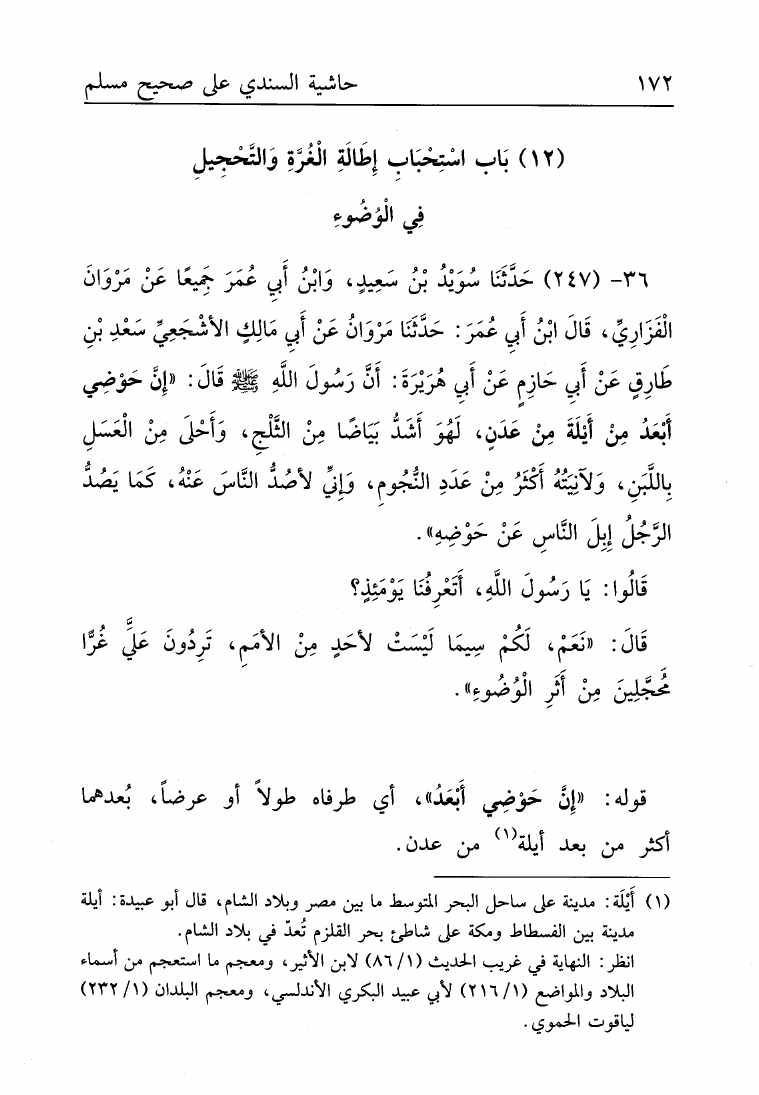 ١٧٢ حاشية السندي على صحيح مسلم
(١٢) بَاب اسْتِحْبَابِ إِطَالَةِ الْغُرَّةِ وَالتَّحْجِيلِ
فِي الْوُضُوءِ
٣٦- (٢٤٧) حَدَّثَنَا سُوَيْدُ بْنُ سَعِيدٍ، وَابْنُ أَبِي عُمَرَ جَمِيعًا عَنْ مَرْوَانَ
الْفَزَارِيِّ، قَالَ ابْنُ أَبِي عُمَرَ: حَدَّثَنَا مَرْوَانُ عَنْ أَبِي مَالِكٍ الأَشْجَعِيِّ سَعْدِ بْنِ
طَارِقٍ عَنْ أَبِي حَازِمٍ عَنْ أَبِي هُرَيْرَةَ: أَنَّ رَسُولَ اللَّهِ ﷺ قَالَ: «إِنَّ حَوْضِي
أَبْعَدُ مِنْ أَيْلَةَ مِنْ عَدَنٍ، لَهُوَ أَشَدُّ بَيَاضًا مِنْ الثَّلْجِ، وَأَحْلَى مِنْ الْعَسَلِ
بِاللَّبَنِ، وَلآنِيَتُهُ أَكْثَرُ مِنْ عَدَدِ النُّجُومِ، وَإِنِّي لأَصُدُّ النَّاسَ عَنْهُ، كَمَا يَصُدُّ
الرَّجُلُ إِبِلَ النَّاسِ عَنْ حَوْضِهِ».
قَالُوا: يَا رَسُولَ اللَّهِ، أَتَعْرِفُنَا يَوْمَئِذٍ؟
قَالَ: «نَعَمْ، لَكُمْ سِيمَا لَيْسَتْ لأَحَدٍ مِنْ الأُمَمِ، تَرِدُونَ عَلَيَّ غُرًّا
مُحَجَّلِينَ مِنْ أَثَرِ الْوُضُوءِ».
قوله: «إِنَّ حَوْضِي أَبْعَدُ»، أي طرفاه طولاً أو عرضاً، بُعدهما
أكثر من بعد أيلة(١) من عدن.
(١) أَيْلَة: مدينة على ساحل البحر المتوسط ما بين مصر وبلاد الشام، قال أبو عبيدة: أيلة
مدينة بين الفسطاط ومكة على شاطئ بحر القلزم تُعدّ في بلاد الشام.
انظر: النهاية في غريب الحديث (١/ ٨٦) لابن الأثير، ومعجم ما استعجم من أسماء
البلاد والمواضع (١/ ٢١٦) لأبي عبيد البكري الأندلسي، ومعجم البلدان (١/ ٢٣٢)
لياقوت الحموي.